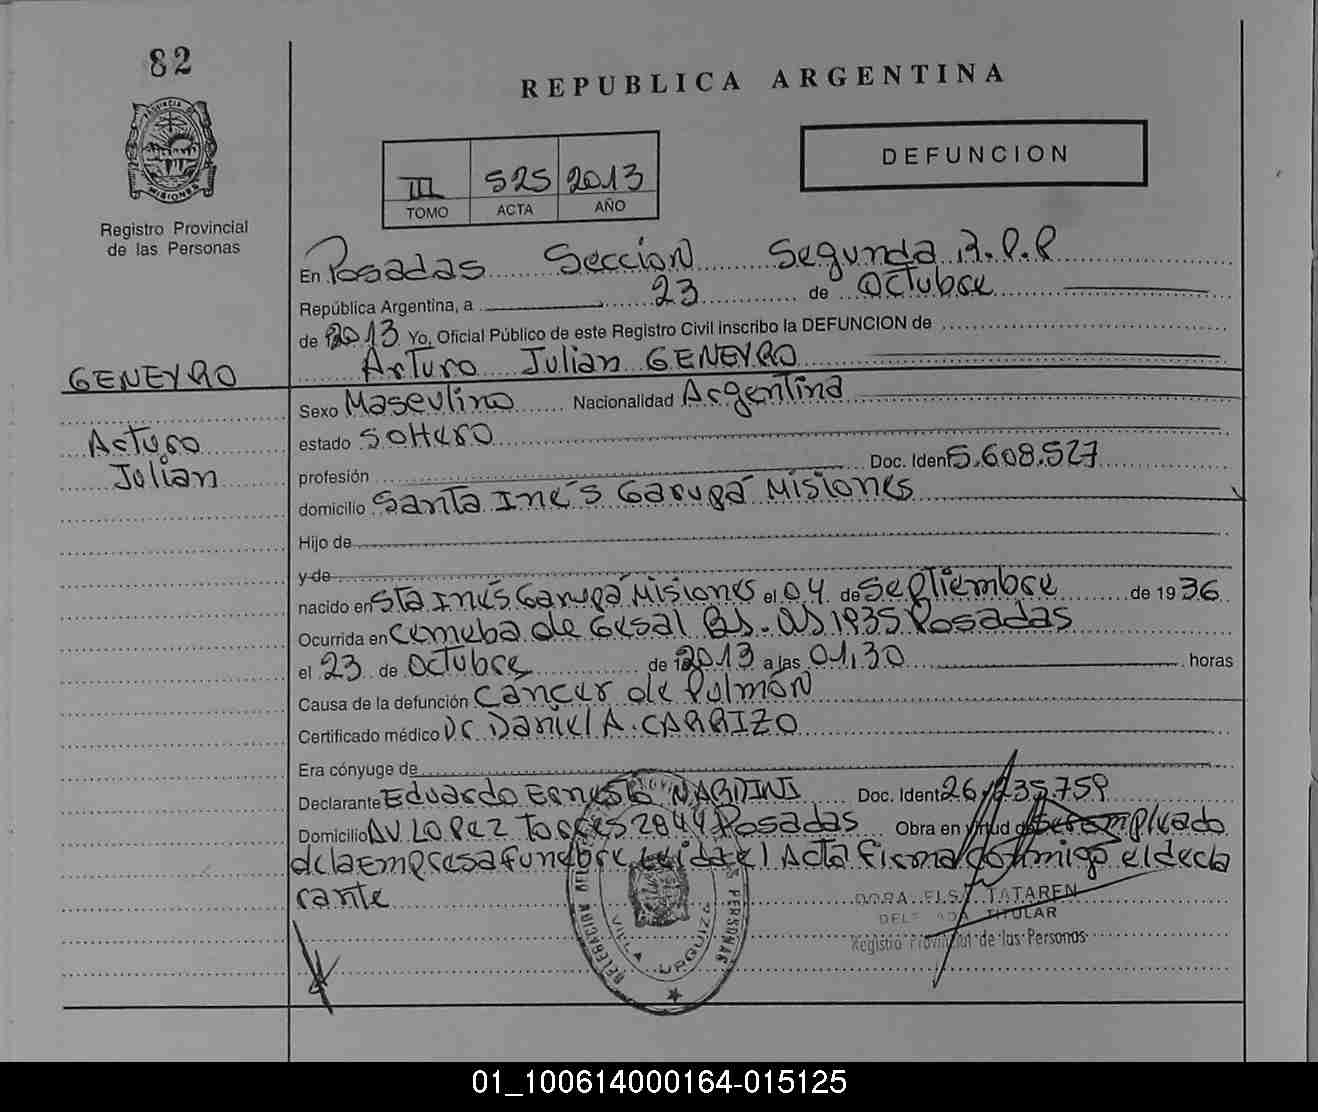 82
REPUBLICA ARGENTINA
PROVINCIA DE
MISIONES
Registro Provincial
de las Personas
DEFUNCION
III 525 2013
TOMO ACTA AÑO
En Posadas Seccion Segunda R.P.P
República Argentina, a 23 de Octubre
de 2013 Yo, Oficial Público de este Registro Civil inscribo la DEFUNCION de
Arturo Julian GENEYRO
GENEYRO
Arturo
Julian
Sexo Masculino Nacionalidad Argentina
estado Soltero
profesión Doc. Ident 5.608.527
domicilio Santa Inés Garupá Misiones
Hijo de
y de
nacido en Sta Inés Garupá Misiones el 04 de Septiembre de 1936
Ocurrida en Cemeba de Gesal Bs. As 1935 Posadas
el 23 de Octubre de 2013 a las 01,30 horas
Causa de la defunción Cancer de Pulmón
Certificado médico Dr Daniel A. CARRIZO
Era cónyuge de
Declarante Eduardo Ernesto NARDINI Doc. Ident 26.235.759
Domicilio AV LOPEZ Torres 2844 Posadas Obra en virtud de Ser empleado
de la Empresa funebre Leida el Acta firma conmigo el decla
rante
DELEGACION
VILLA URQUIZA
PERSONAS
DORA ELSA TATAREN
DELEGADA TITULAR
Registro Provincial de las Personas
01_100614000164-015125